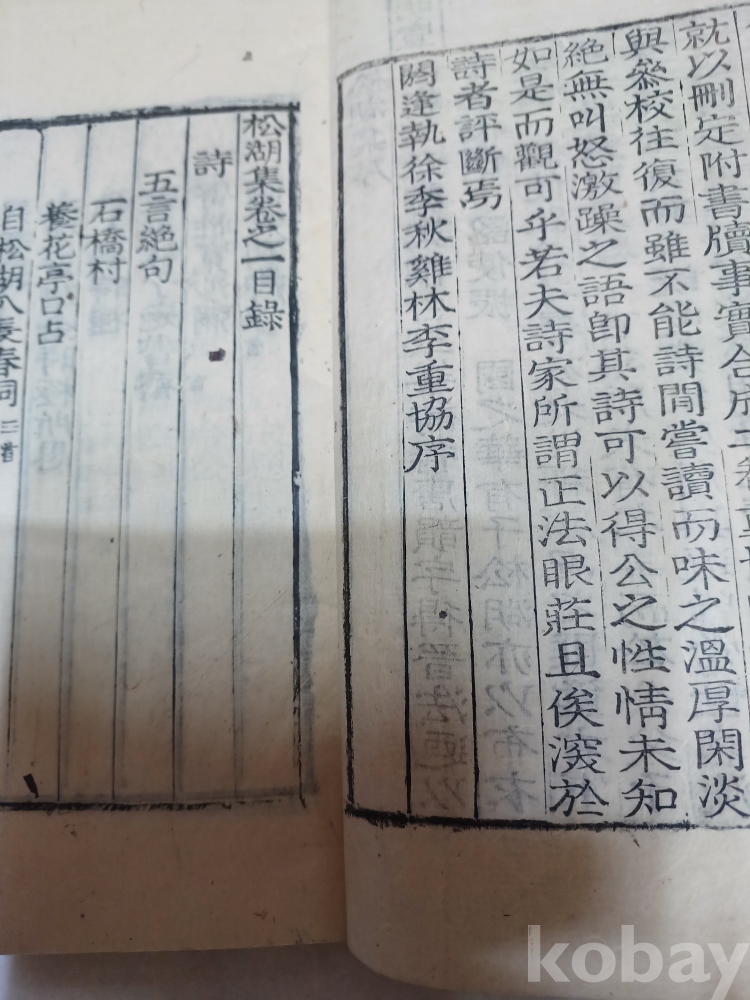 就以刪定附書牘事實合成二卷
與叅校往復而雖不能詩閒嘗讀而味之溫厚閑淡
絶無叫怒激躁之語卽其詩可以得公之性情未知
如是而觀可乎若夫詩家所謂正法眼莊且俟湥於
詩者評斷焉
閼逢執徐季秋雞林李重協序
松湖集卷之一目錄
詩
五言絶句
石橋村
養花亭口占
自松湖入長春洞 二首
kobay